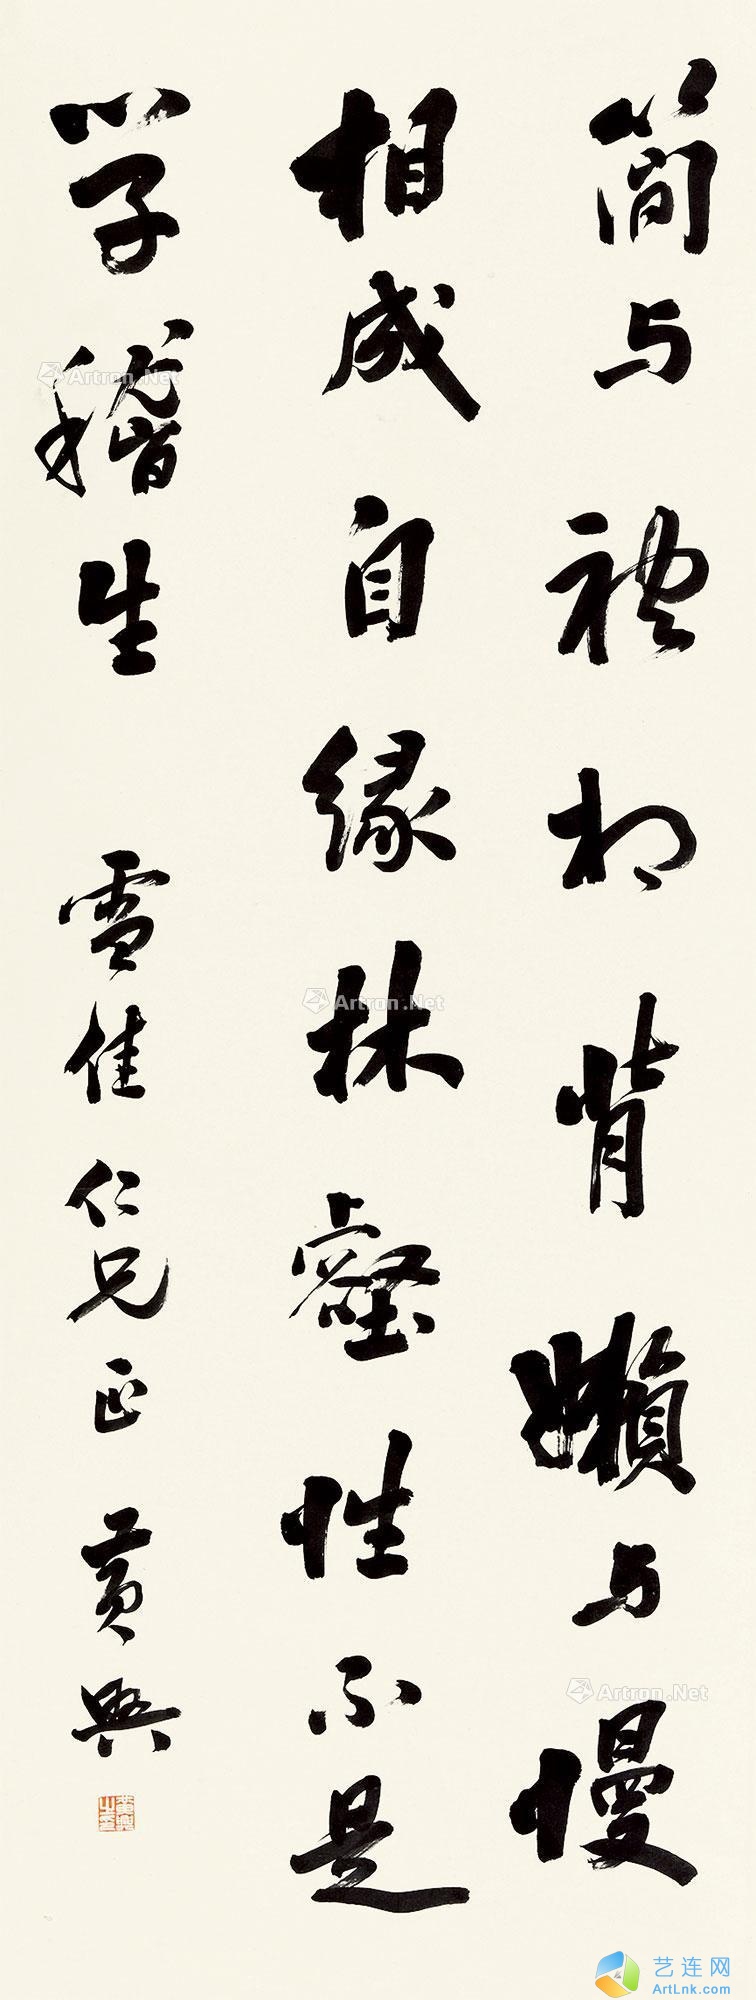 简与礼相背懒与慢
相成自缘林壑性不是
学嵇生
雪佳仁兄正 黄兴
Artron.Net
Artron.Net
Artron.Net
艺连网
ArtLnk.com